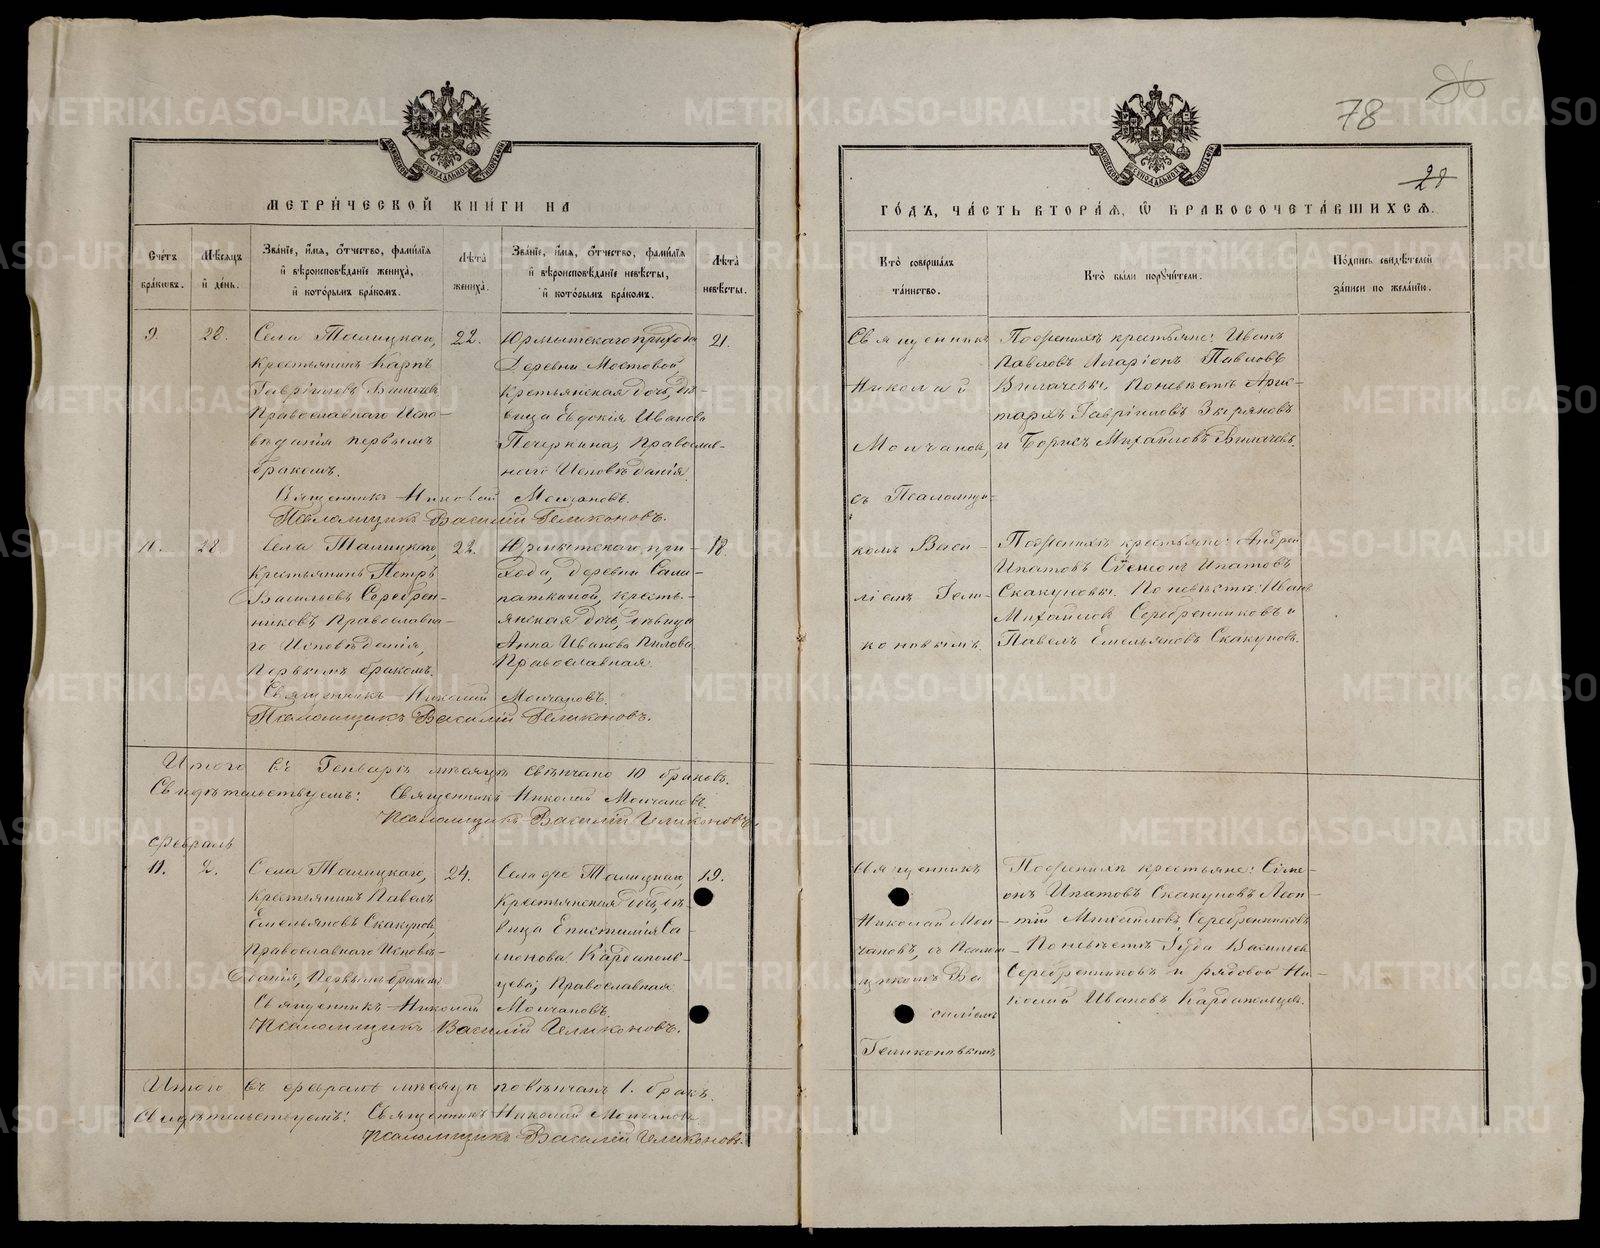 78
26
21
МЕТРИЧЕСКОЙ КНИГИ НА
Счетъ браковъ.
Мѣсяцъ и день.
Званіе, имя, отчество, фамилія и вѣроисповѣданіе жениха, и которымъ бракомъ.
Лѣта жениха.
Званіе, имя, отчество, фамилія и вѣроисповѣданіе невѣсты, и которымъ бракомъ.
Лѣта невѣсты.
9.
28.
Села Талицкаго,
крестьянинъ Карпъ
Гавріиловъ
Православнаго Испо-
вѣданія первымъ
бракомъ.
22.
Юрмытскаго прихода
Деревни Мостовой,
крестьянская дочь, дѣ-
вица Евдокія Иванова
Печеркина, Православ-
наго Исповѣданія
21.
Священникъ Николай Молчановъ.
Псаломщикъ Василій Геликоновъ.
28
Села Талицкаго,
Крестьянинъ Петръ
Васильевъ Серебрен-
никовъ, Православна-
го Исповѣданія,
Первымъ бракомъ.
22.
Юрмытскаго при-
хода, деревни
кресть-
янская дочь, дѣвица
Анна Иванова
Православная
18.
Священникъ Николай Молчановъ.
Псаломщикъ Василій Геликоновъ.
Итого въ Генварѣ мѣсяцѣ свѣнчано 10 браковъ.
Свидѣтельствуемъ: Священникъ Николай Молчановъ.
Псаломщикъ Василій Геликоновъ.
Февраль
11.
2.
Села Талицкаго,
крестьянинъ Павелъ
Емельяновъ Скакуновъ,
Православнаго Исповѣ-
данія, Первымъ бракомъ
24.
Села Талицкаго,
крестьянская дочь, дѣ-
вица Епистимія Са-
монова Кардаполь-
цева, Православная
19.
Священникъ Николай Молчановъ.
Псаломщикъ Василій Геликоновъ.
Итого въ февралѣ мѣсяцѣ повѣнчанъ 1. бракъ.
Свидѣтельствуемъ: Священникъ Николай Молчановъ
Псаломщикъ Василій Геликоновъ.
ГОДЪ, ЧАСТЬ ВТОРАЯ, Ѡ БРАКОСОЧЕТАВШИХСЯ.
Кто совершалъ таинство.
Кто были поручители.
Подпись свидѣтелей записи по желанію.
Священникъ
Николай
Молчановъ,
съ Псаломщи-
комъ Васи-
ліемъ Гели-
коновымъ.
По женихѣ крестьяне: Иванъ
Павловъ Иларіонъ Павловъ
По невѣстѣ Арис-
тархъ Гавріиловъ Зыряновъ
и Борисъ Михайловъ
По женихѣ крестьяне: Андрей
Ипатовъ Симеонъ Ипатовъ
Скакуновы. По невѣстѣ: Иванъ
Михайловъ Серебренниковъ и
Павелъ Емельяновъ Скакуновъ.
Священникъ
Николай Мол-
чановъ, съ Псалом-
щикомъ Ва
силіемъ
Геликоновымъ
По женихѣ крестьяне: Симе-
онъ Ипатовъ Скакуновъ Леон-
тій Михайловъ Серебренниковъ
По невѣстѣ Іуда Васильевъ
Серебренниковъ и рядовой Ни-
колай Ивановъ Кардапольцевъ.